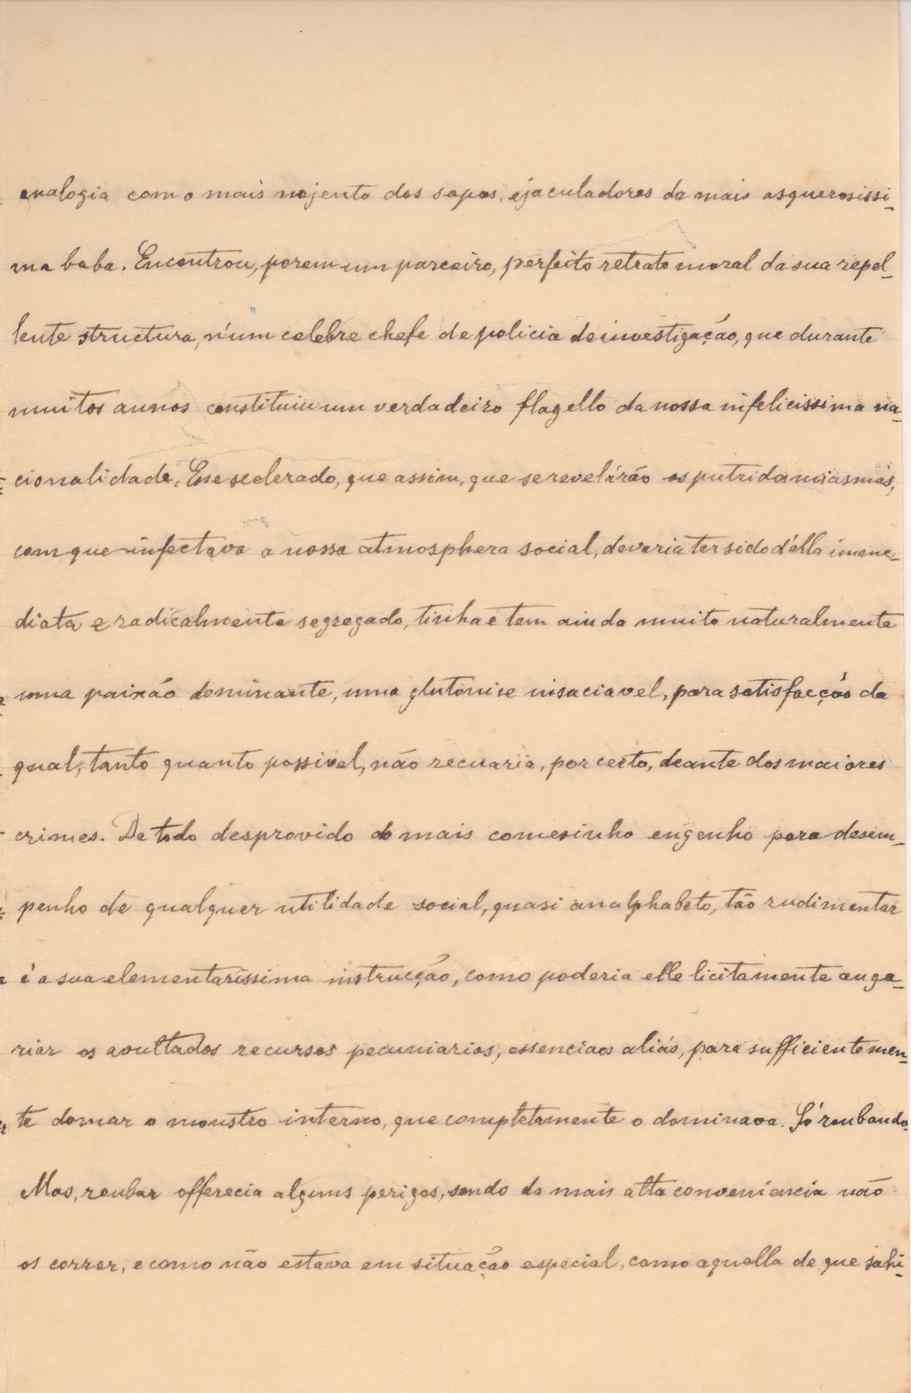 analogia com o mais nojento dos sapos, ejaculadores da mais asquerosissi-
ma baba. Encontrou, porem um parceiro, perfeito retrato moral da sua repel-
lente structura, n'um celebre chefe de policia de investigação, que durante
muitos annos constituiu um verdadeiro flagello da nossa infelicissima na-
cionalidade. Esse scelerado, que assim, que se revelárão os putridos miasmas,
com que infectava a nossa atmosphera social, deveria ter sido d'ella imme-
diata e radicalmente segregado, tinha e tem ainda muito naturalmente
uma paixão dominante, uma glutonise insaciavel, para satisfacção da
qual, tanto quanto possivel, não recuaria, por certo, deante dos maiores
crimes. De todo desprovido do mais comesinho engenho para desem-
penho de qualquer utilidade social, quasi analphabeto, tão rudimentar
é a sua elementarissima instrucção, como poderia elle licitamente anga-
riar os avultados recursos pecuniarios, essenciaes aliás, para sufficientemen-
te domar o monstro interno, que completamente o dominava. Só roubando.
Mas, roubar offerecia alguns perigos, sendo da mais alta conveniencia não
os correr, e como não estava em situação especial, como aquella de que sahi-